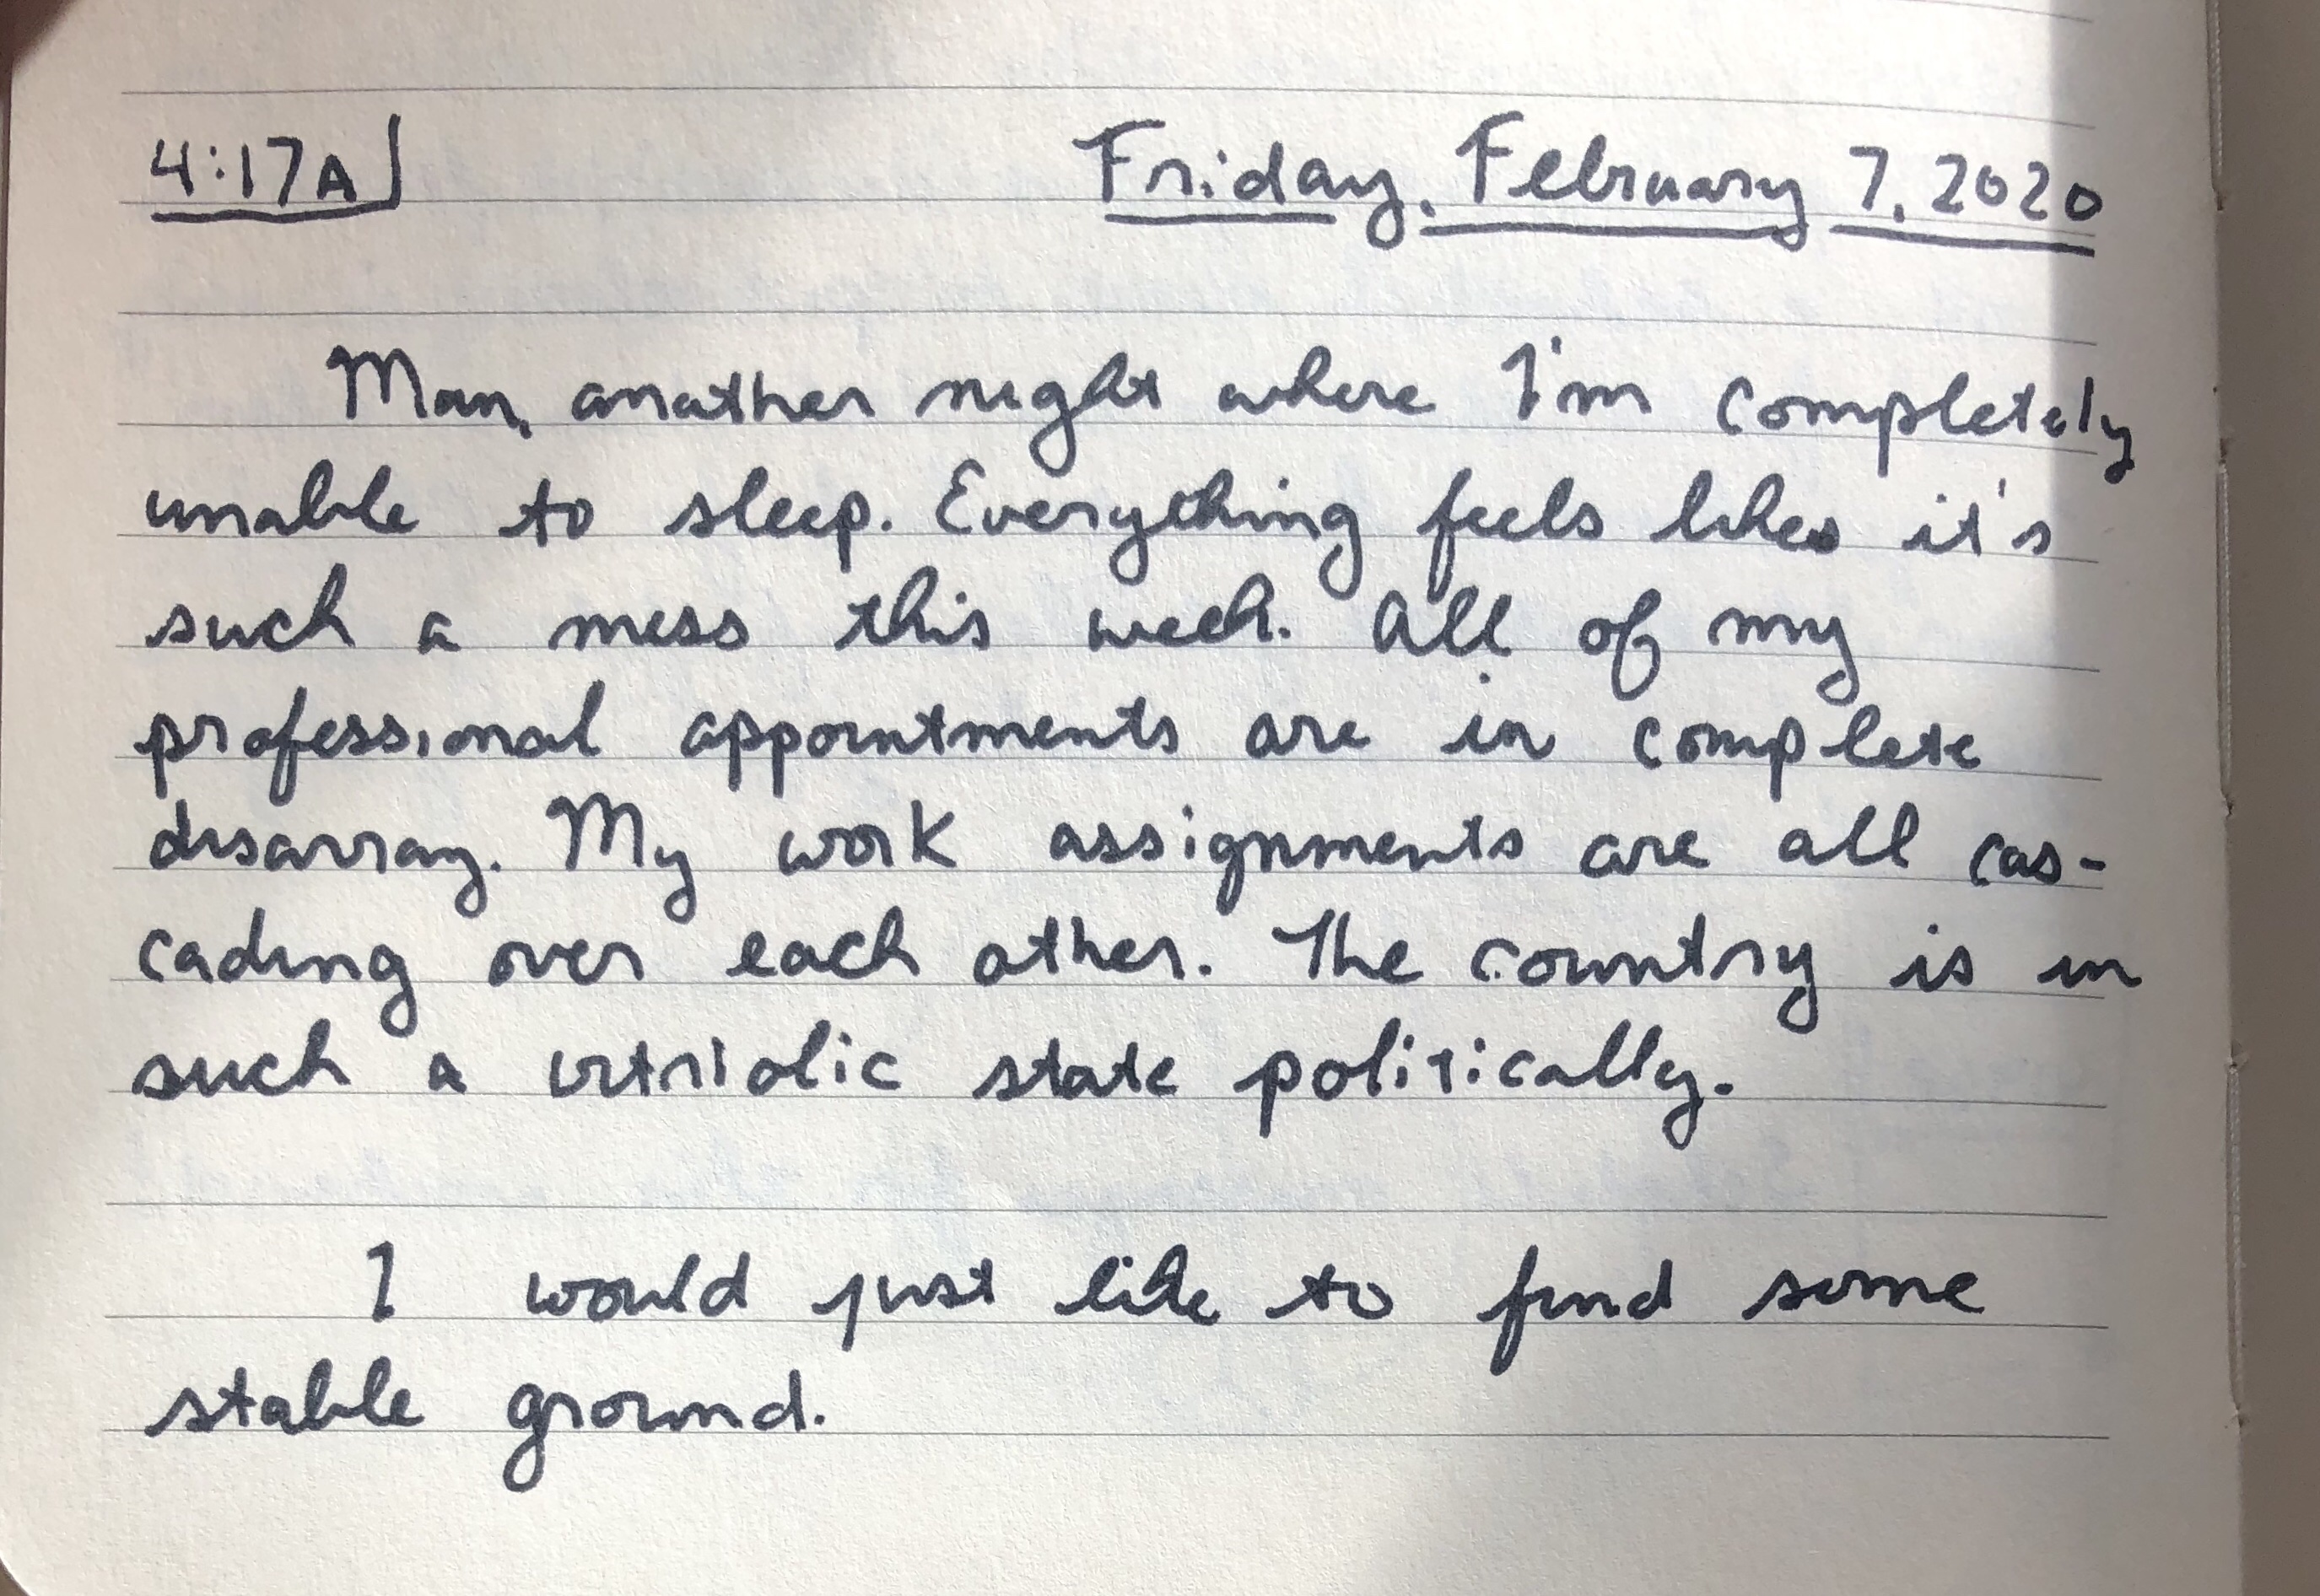 4:17A
Friday, February 7, 2020
Man, another night where I'm completely
unable to sleep. Everything feels likes it's
such a mess this week. All of my
professional appointments are in complete
disarray. My work assignments are all cas-
cading over each other. The country is in
such a vitriolic state politically.
I would just like to find some
stable ground.